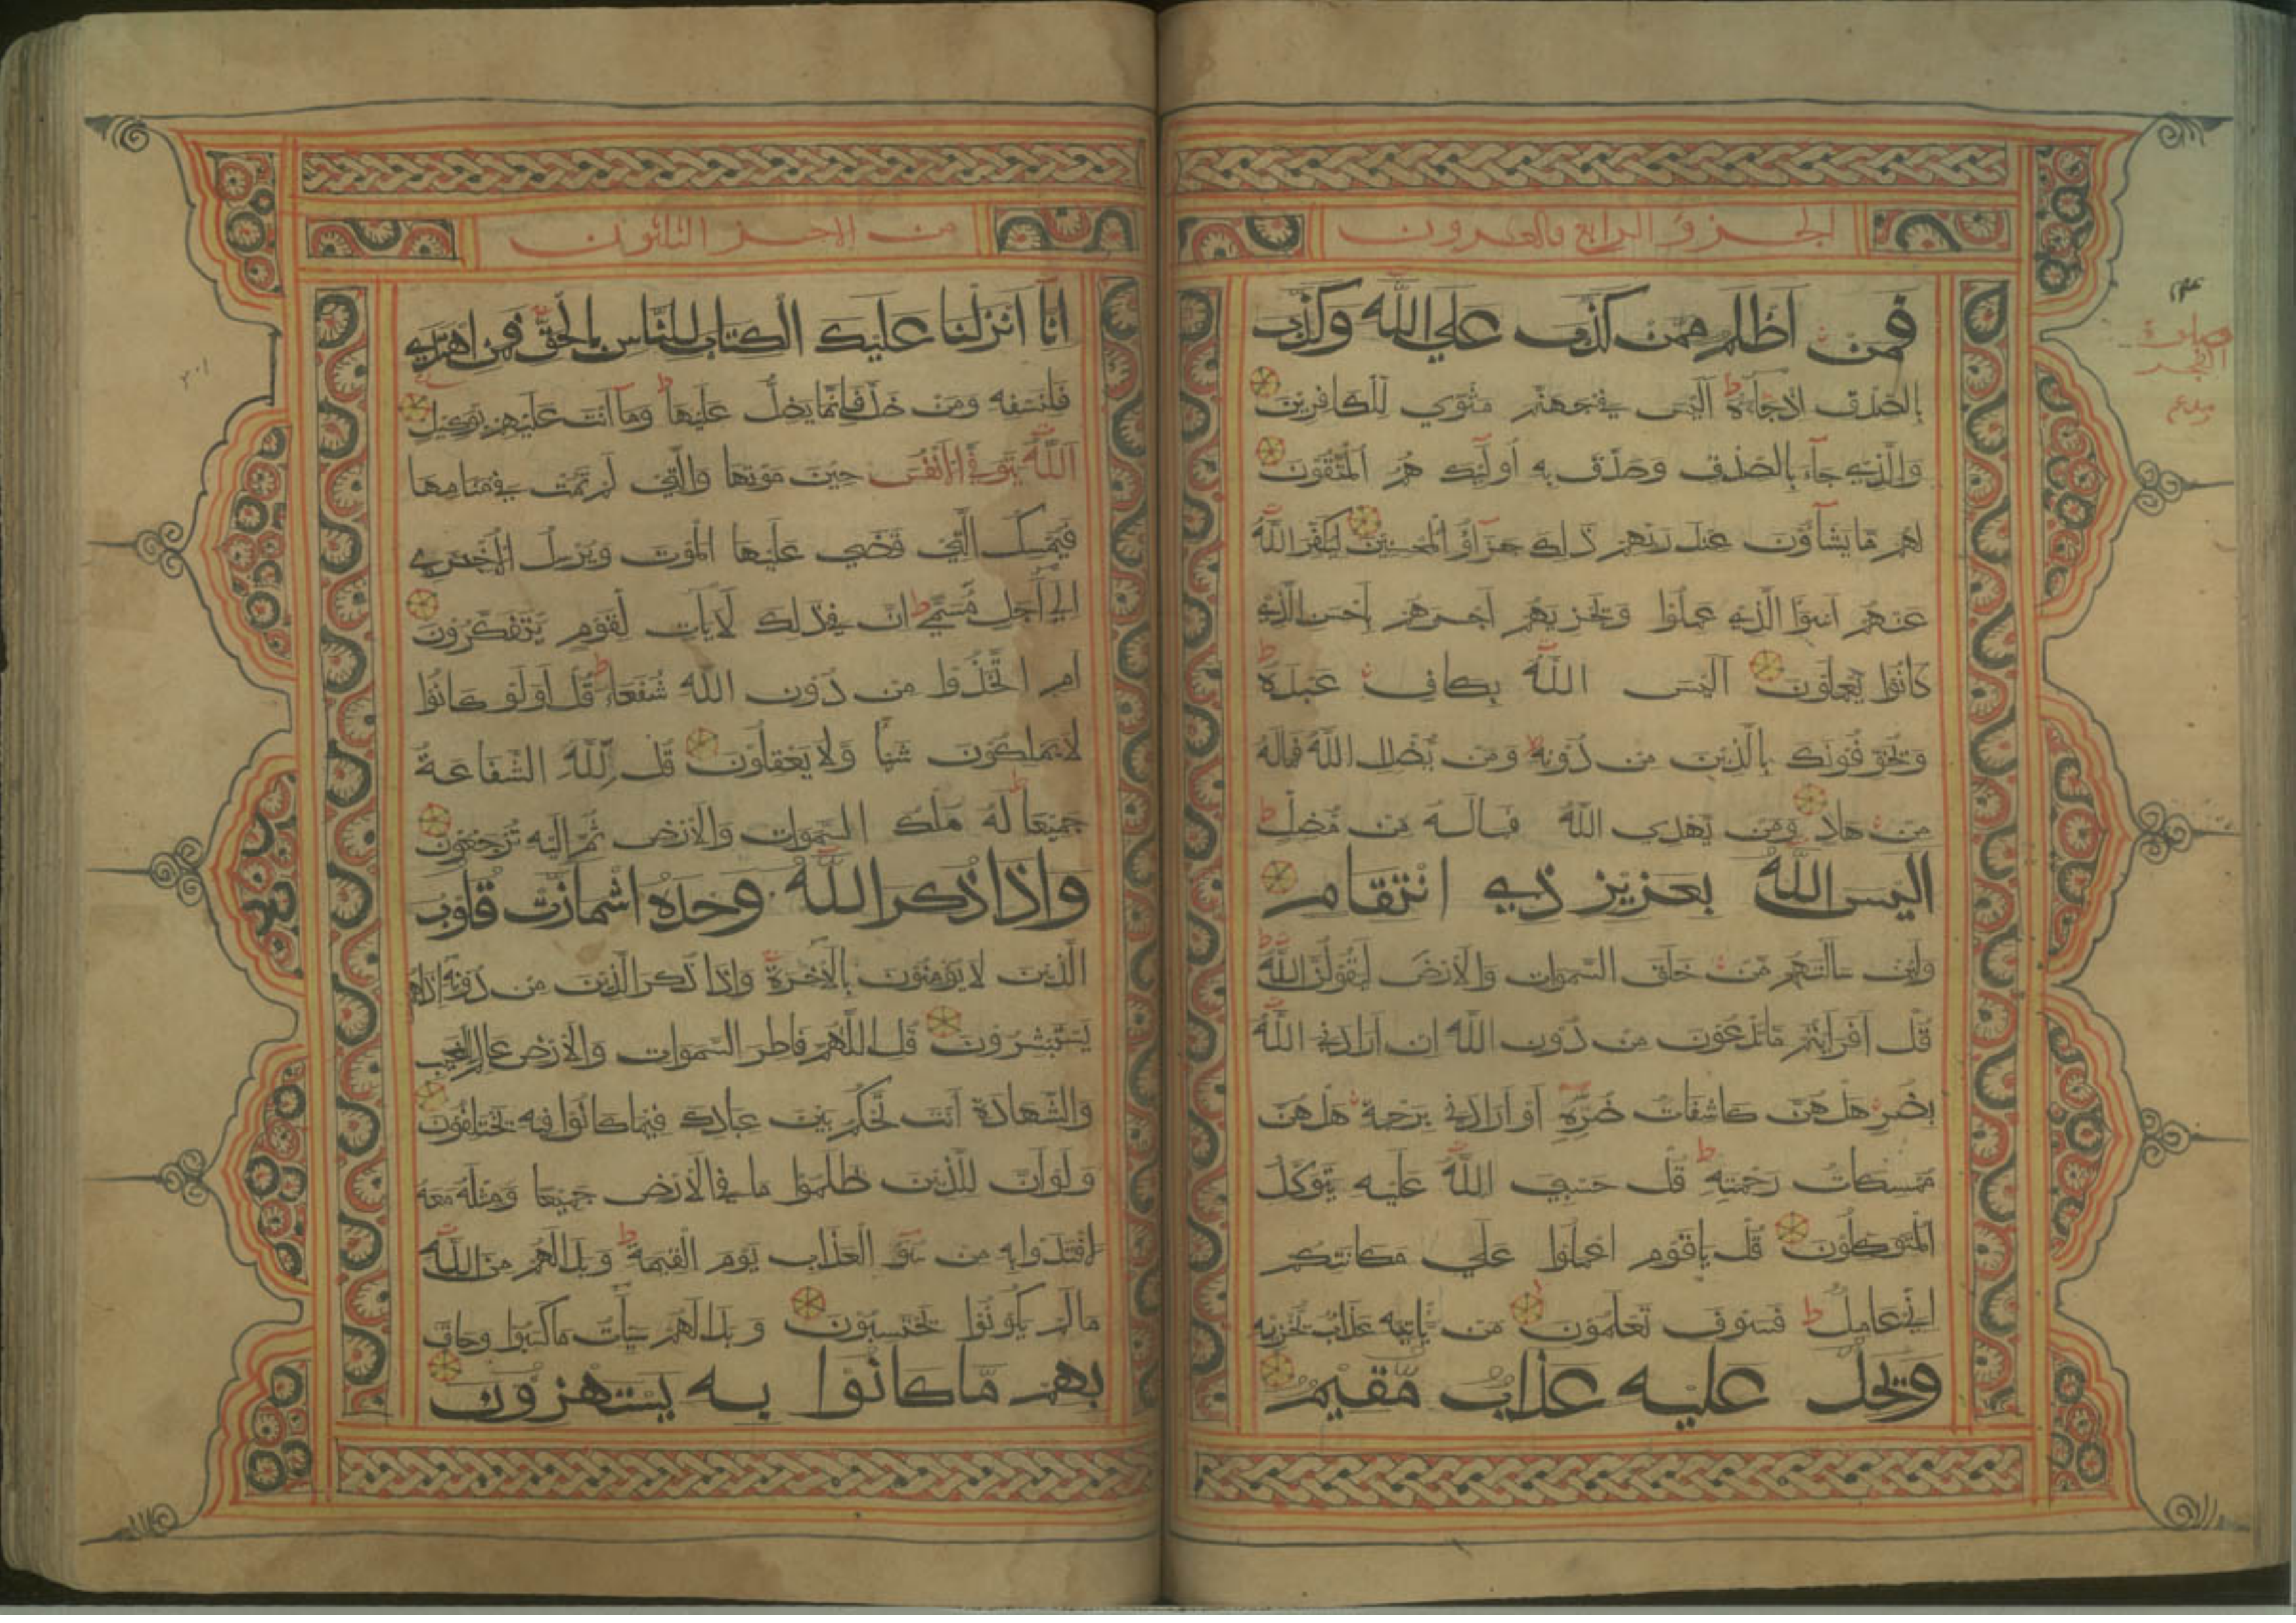 الجزؤ الرابع والعشرون
فمن اظلم ممن كذب علي الله وكذب
بالصدق اذ جاءه ط اليس في جهنم مثوي للكافرين
والذي جاء بالصدق وصدق به اوليك هم المتقون
لهم ما يشآؤن عند ربهم ذالك جزآؤ المحسنين ليكفر الله
عنهم اسوا الذي عملوا ويجزيهم اجرهم باحسن الذي
كانوا يعملون اليس الله بكاف عبده ط
ويخوفونك بالذين من دونه ومن يضلل الله فماله
من هاد ومن يهدي الله فماله من مضل ط
اليس الله بعزيز ذي انتقام
ولين سالتهم من خلق السموات والارض ليقولن الله ط
قل افرايتم ما تدعون من دون الله ان ارادني الله
بضر هل هن كاشفات ضره او ارادني برحمة هل هن
ممسكات رحمته ط قل حسبي الله عليه يتوكل
المتوكلون قل ياقوم اعملوا علي مكانتكم
اني عامل ط فسوف تعلمون من ياتيه عذاب يخزيه
ويحل عليه عذاب مقيم
صلوة
الفجر
من الاجز الثلثون
انا انزلنا عليك الكتاب للناس بالحق فمن اهتدي
فلنفسه ومن ضل فانما يضل عليها ط وما انت عليهم بوكيل
الله يتوفي الانفس حين موتها والتي لم تمت في منامها
فيمسك التي قضي عليها الموت ويرسل الاخري
الي اجل مسمي ط ان في ذلك لايات لقوم يتفكرون
ام اتخذوا من دون الله شفعاء ط قل اولو كانوا
لا يملكون شيا ولا يعقلون قل لله الشفاعة
جميعا ط له ملك السموات والارض ثم اليه ترجعون
واذا ذكر الله وحده اشمازت قلوب
الذين لا يومنون بالاخرة واذا ذكر الذين من دونه اذا هم
يستبشرون قل اللهم فاطر السموات والارض عالم الغيب
والشهادة انت تحكم بين عبادك فيما كانوا فيه يختلفون
ولو ان للذين ظلموا ما في الارض جميعا ومثله معه
لافتدوا به من سوء العذاب يوم القيمة ط وبدا لهم من الله
ما لم يكونوا يحتسبون وبدا لهم سيات ما كسبوا وحاق
بهم ما كانوا به يستهزون